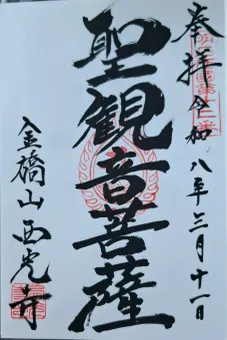 奉拝
令和八年三月十一日
聖観音菩薩
金橋山西光寺